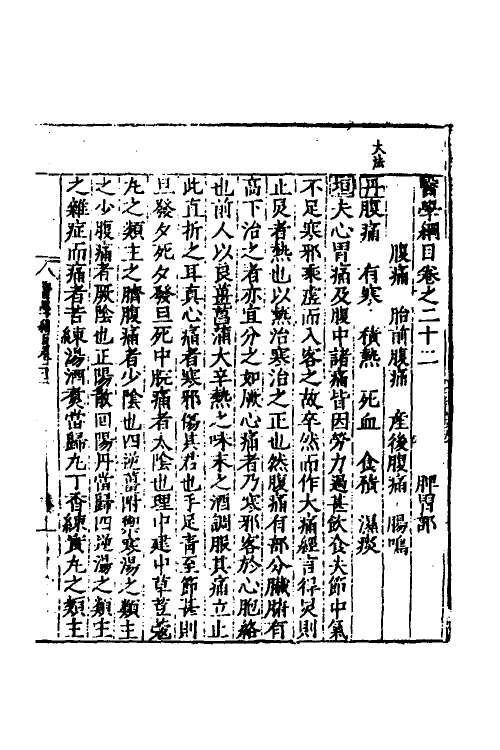 大法
醫學綱目卷之二十二　脾胃部
腹痛　胎前腹痛　產後腹痛　腸鳴
丹腹痛　有寒　積熱　死血　食積　濕痰
垣夫心胃痛及腹中諸痛皆因勞力過甚飲食失節中氣
不足寒邪乘虛而入客之故卒然而作大痛經言得炅則
止炅者熱也以熱治寒治之正也然腹痛有部分臟腑有
高下治之者亦宜分之如厥心痛者乃寒邪客於心胞絡
也前人以良薑菖蒲大辛熱之味末之酒調服其痛立止
此直折之耳真心痛者寒邪傷其君也手足青至節甚則
旦發夕死夕發旦死中脘痛者太陰也理中建中草荳蔻
丸之類主之臍腹痛者少陰也四逆薑附禦寒湯之類主
之少腹痛者厥陰也正陽散回陽丹當歸四逆湯之類主
之雜症而痛者苦練湯酒煑當歸丸丁香練實丸之類主
醫學綱目卷二十二